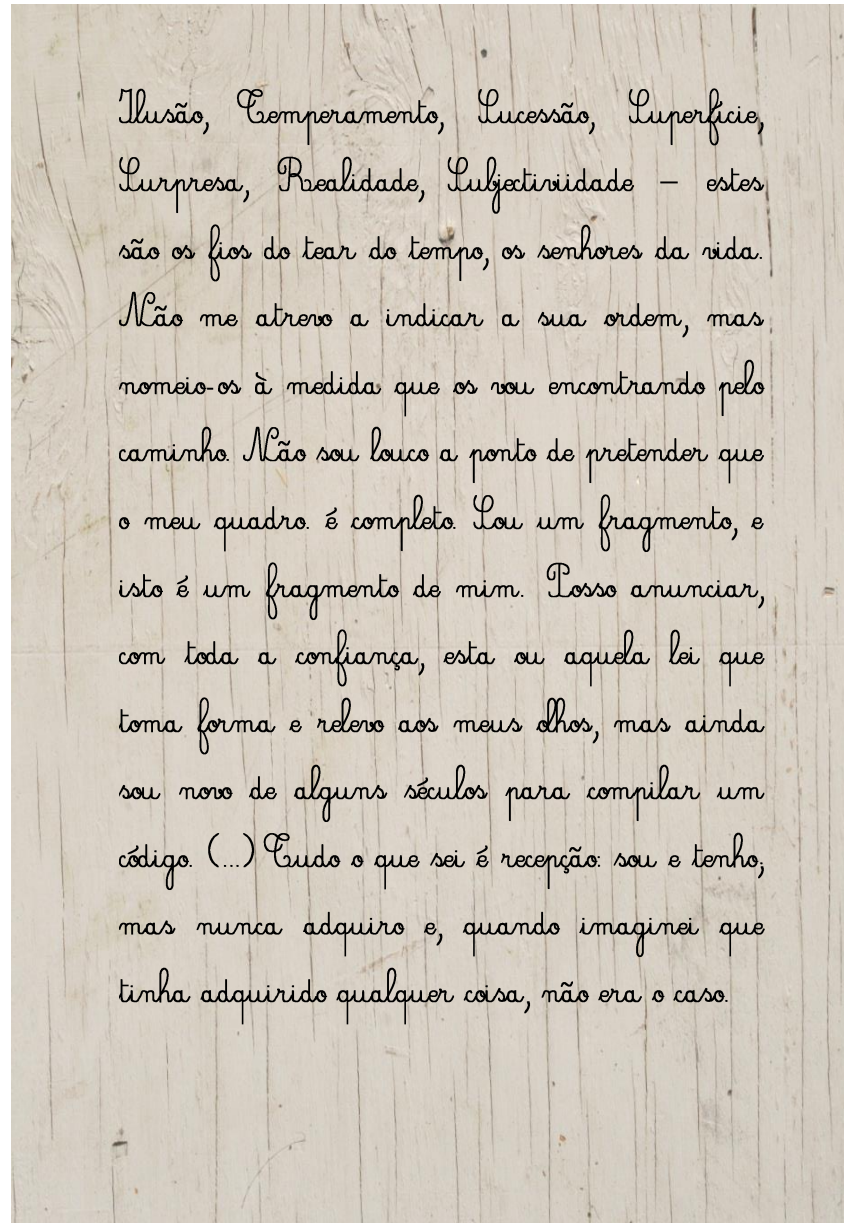 Ilusão, Temperamento, Sucessão, Superfície,
Surpresa, Realidade, Subjectiviidade – estes
são os fios do tear do tempo, os senhores da vida.
Não me atrevo a indicar a sua ordem, mas
nomeio-os à medida que os vou encontrando pelo
caminho. Não sou louco a ponto de pretender que
o meu quadro. é completo. Sou um fragmento, e
isto é um fragmento de mim. Posso anunciar,
com toda a confiança, esta ou aquela lei que
toma forma e relevo aos meus olhos, mas ainda
sou novo de alguns séculos para compilar um
código. (...) Tudo o que sei é recepção: sou e tenho;
mas nunca adquiro e, quando imaginei que
tinha adquirido qualquer coisa, não era o caso.